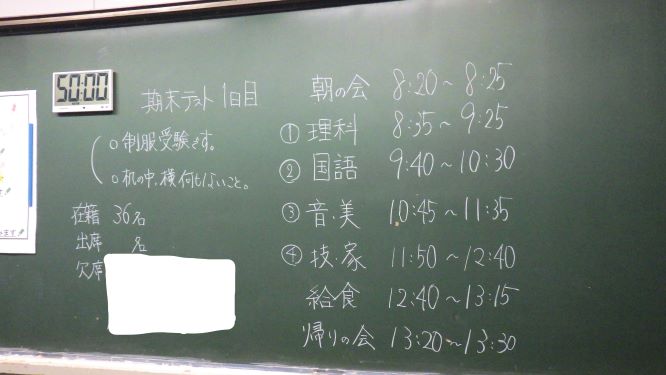 50:00
期末テスト 1日目
○制服受験です。
○机の中、横何もしないこと。
在籍 36名
出席 名
欠席
朝の会 8:20〜8:25
①理科 8:35〜9:25
②国語 9:40〜10:30
③音・美 10:45〜11:35
④技・家 11:50〜12:40
給食 12:40〜13:15
帰りの会 13:20〜13:30